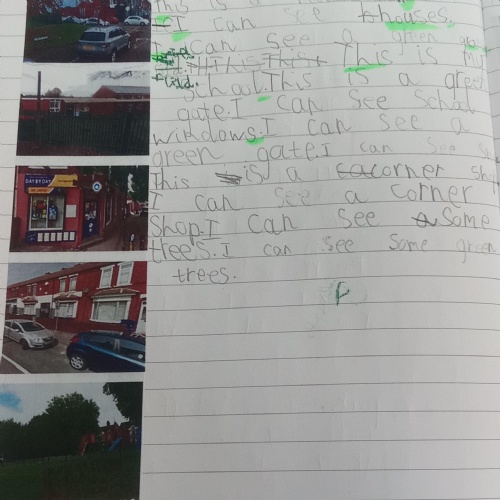 This is a
I can see houses.
I can see a green
field. This is my
school. This is a green
gate. I can see School
windows. I can see a
green gate. I can see
This is a corner shop
I can see a corner
Shop. I can see some
trees. I can see some green
trees.
DAY BY DAY